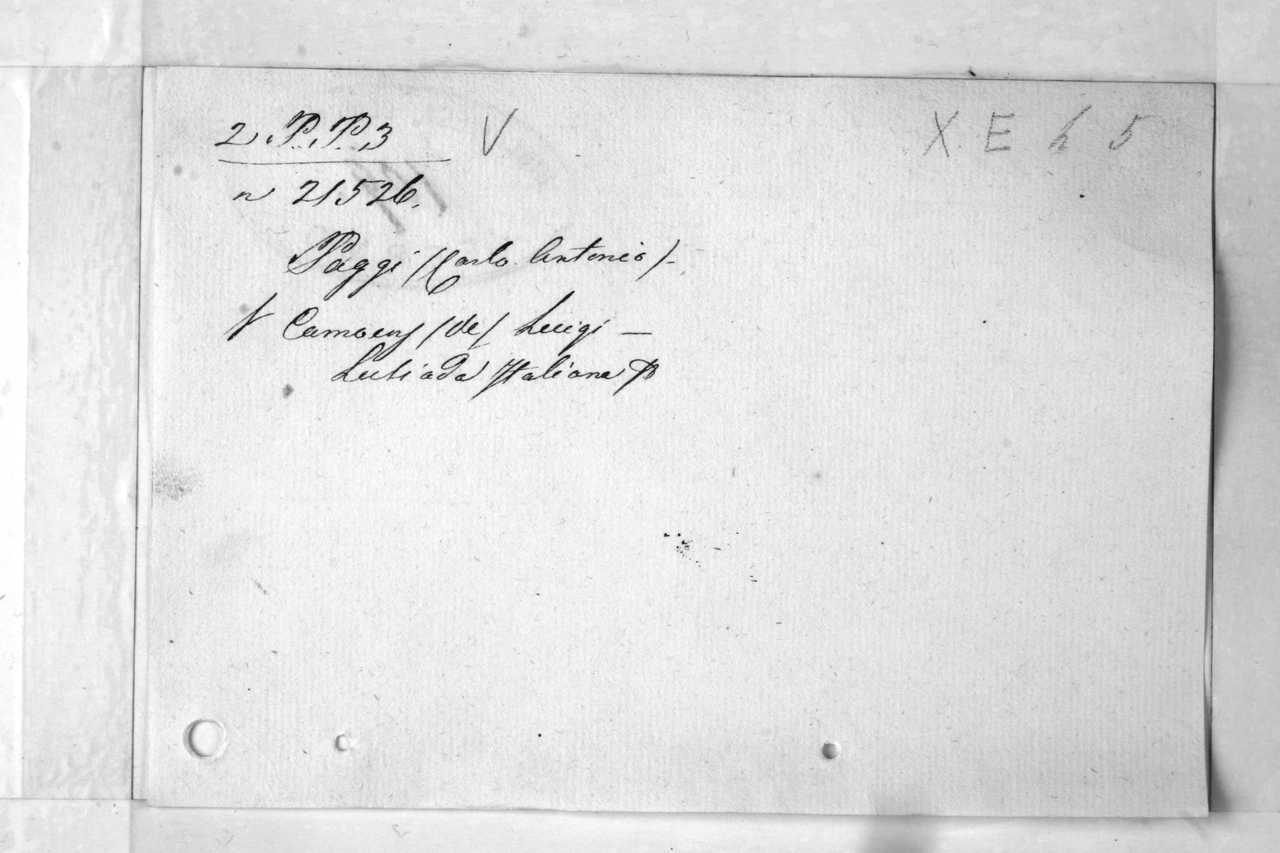 2. P. P. 3 V X E h 5
n 21526.
Paggi /Carlo Antonio/-
V Camoens /de/ Luigi —
Lusiada Italiana